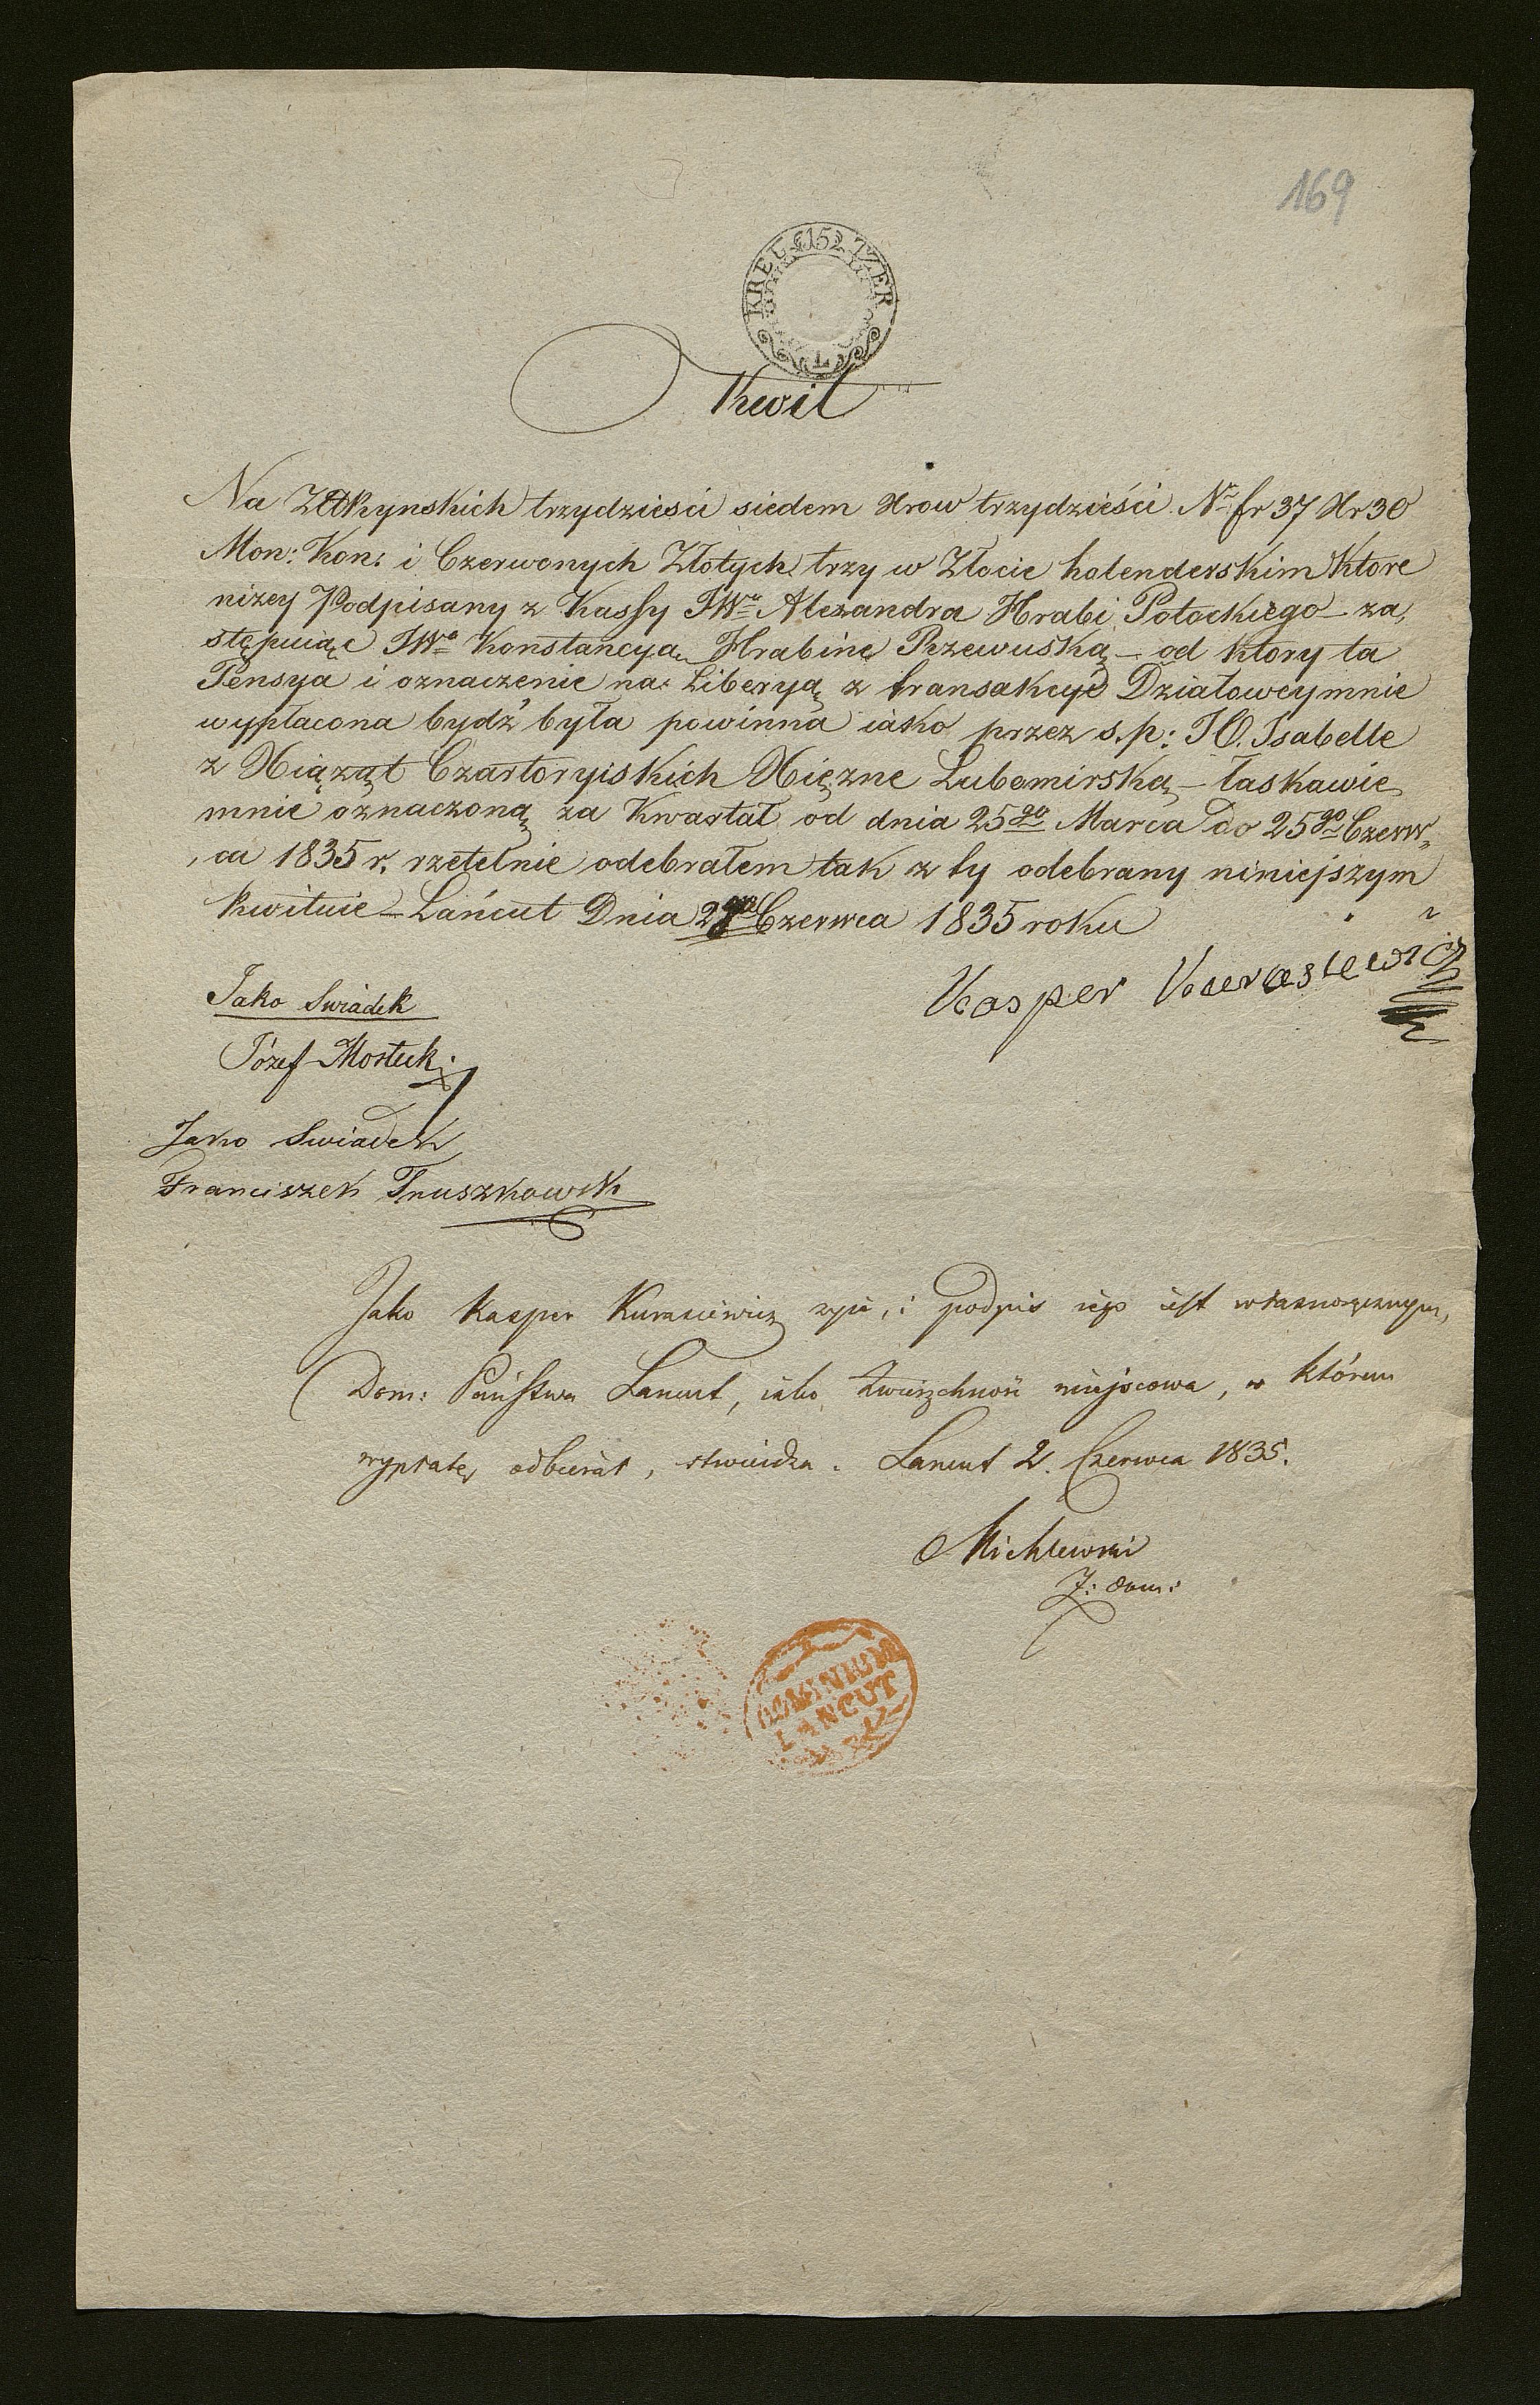 169
15 KREUTZER
Kwit
Na ZłRhynskich trzydziesci siedem Xrow trzydzieści Nr fr 37 Xr 30
Mon: Kon: i Czerwonych Złotych trzy w Złocie holenderskim Ktore
niżey Podpisany z Kassy JWo Alexandra Hrabi Potockiego – za,
stępuiąc JWą Konstancyą Hrabinę Rzewuską – od ktory ta
Pensya i oznaczenie na Liberyą z transakcyi Działowey mnie
wypłacona bydź była powinna iako przez s.p: JO. Isabelle
z Xiąząt Czartoryiskich Xięzne Lubomirską – łaskawie
mnie oznaczoną za Kwartał od dnia 25go Marca do 25go Czerw„
„ca 1835 r. rzetelnie odebrałem tak z ty odebrany niniejszym
kwituie – Łańcut Dnia Czerwca 1835 roku
Kasper Kurasiewicz
Jako Swiadek
Józef Mostecki
Jako Swiadek
Franciszek Truszkowsk
Jako Kasper Kurasiewicz żyie, i podpis iego iest własnoręcznym,
Dom: Państwa Lancut, iako Zwierzchność miejscowa, w którem
wypłatę odbierał, stwierdza. Lancut 2. Czerwca 1835.
Michlewski
J: dom:
DOMINIUM
LANCUT